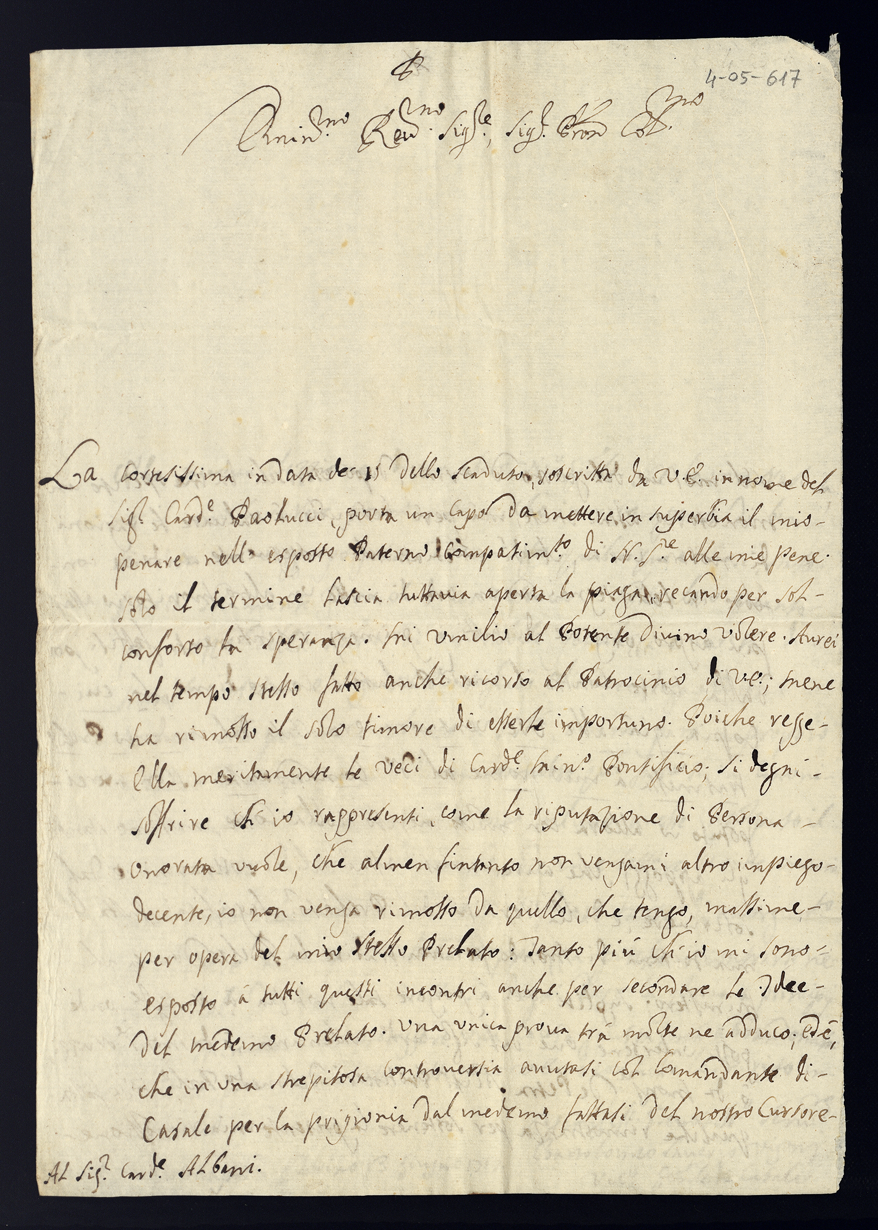 4-05-617
Emin.mo Reu.mo Sig.re, Sig.r Pron Col.mo
La cortesissima in data de' 15 dello scaduto, soscritta da V.E. in nome del
Sig.r Card.e Paolucci, porta un capo da mettere in superbia il mio
penare nell' esposto Paterno Compatim.to di N. S.re alle mie pene.
Solo il termine lascia tuttavia aperta la piaga, recando per sol
conforto la speranza. mi umilio al Potente Divino volere. Aurei
nel tempo stesso fatto anche ricorso al Patrocinio di V.E.; mene
ha rimosso il solo timore di esserle importuno. Poiche regge
Ella meritamente le veci di Card.e Pontificio; Si degni
soffrire ch' io rappresenti, come la riputazione di Persona
onorata vuole, che almen fintanto non vengami altro impiego
decente, io non venga rimosso da quello, che tengo, massime
per opera del mio stesso Prelato: Tanto più ch' io mi sono
esposto à tutti questi incontri anche per secondare le Idee
del medemo Prelato. Una unica prova trà molte ne adduco; ed è,
che in una strepitosa controversia avutasi col Comandante di
Casale per la prigionia dal medemo fattasi del nostro Cursore
Al Sig.r Card.e Albani.